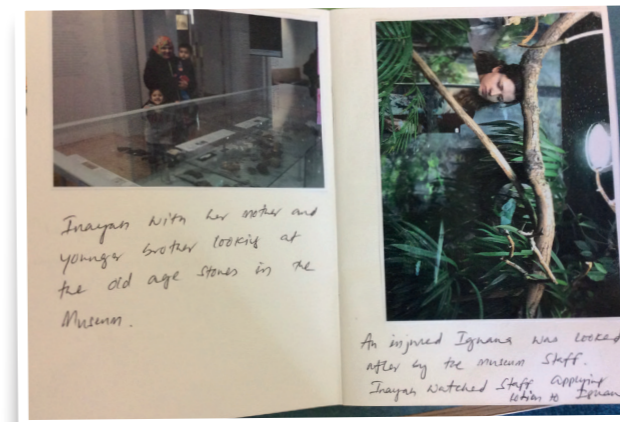 Inayah with her mother and
younger brother looking at
the old age stones in the
Museum.
An injured Iguana was looked
after by the museum staff.
Inayah watched staff applying
lotion to Iguana